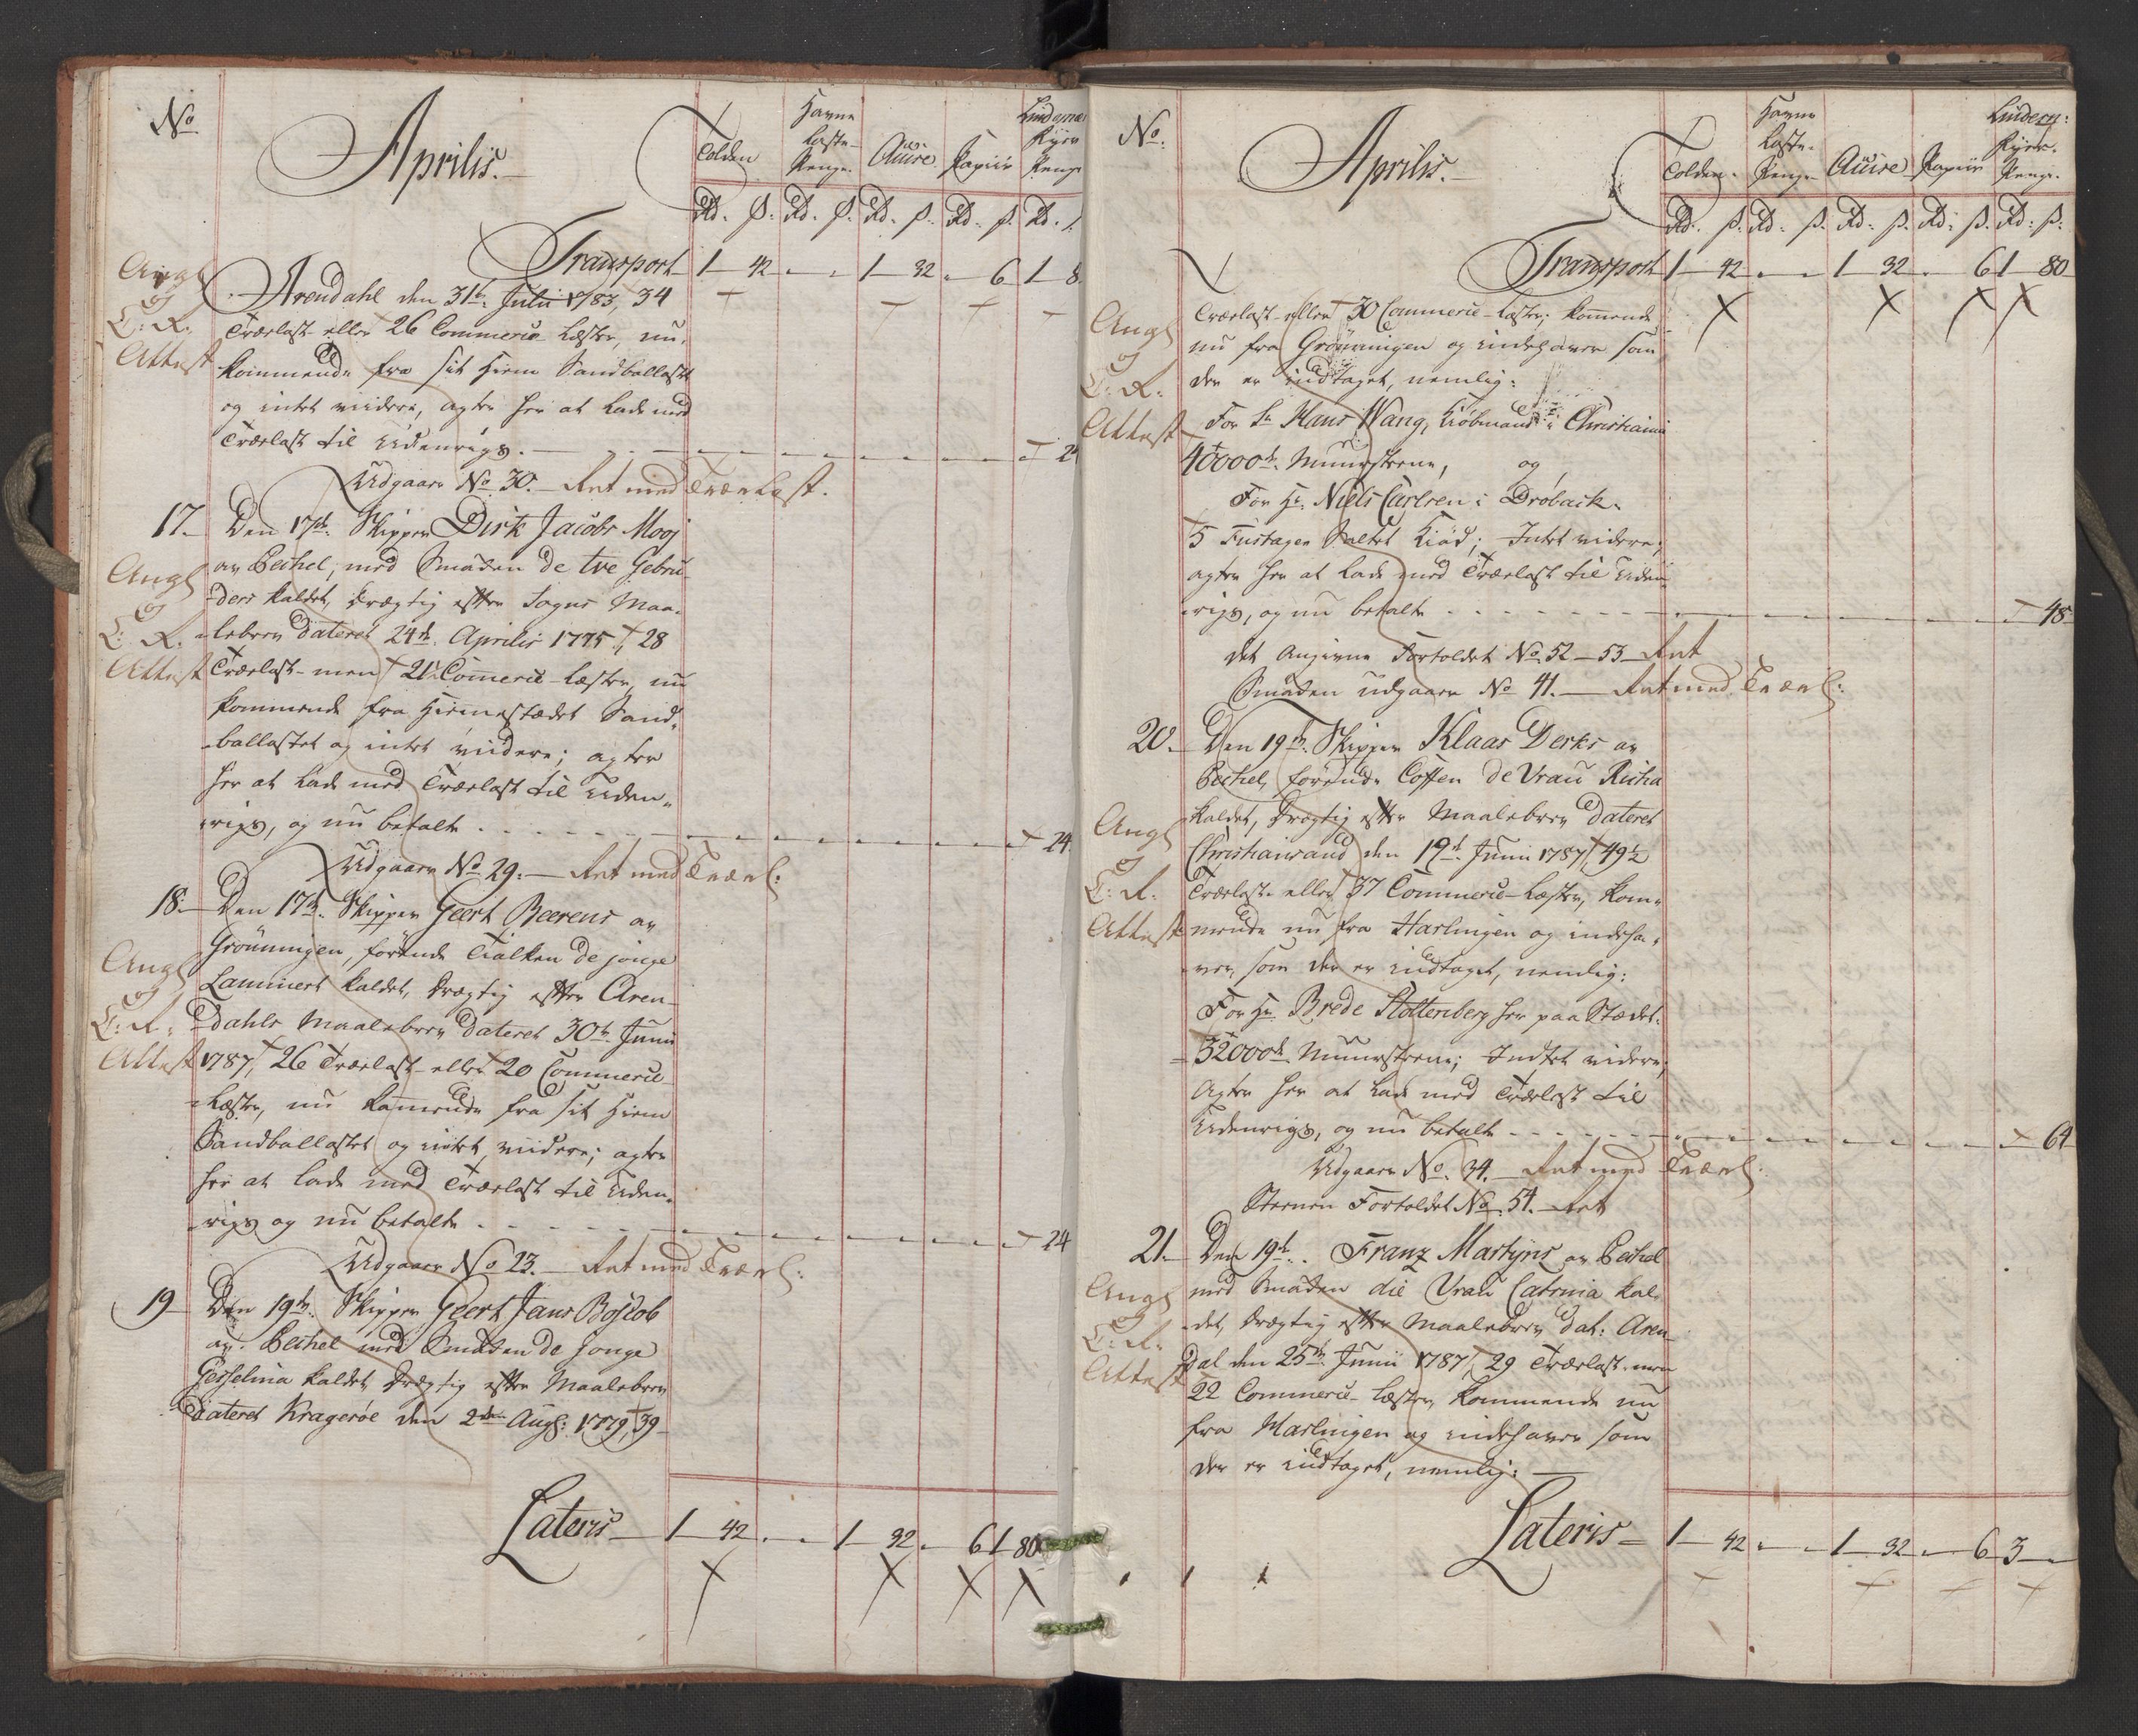 No
Aprilis.
Tolden
Havne Laste-Penge.
Accise
Papiir
Fyer Penge
Rd. ß. Rd. ß. Rd. ß. Rd. ß. Rd.
Transport 1 42 - - 1 32 - 6 1 8
Ang
og
T: R.
Attest
Arendahl den 31te Julii 1783, 34
Trælast eller 26 Commerce Læster, nu
kommende fra sit Hiem Sandballastet
og intet viidere, agter her at lade med
Trælast til Udenrigs. - 24
Udgaaer No 30. - Ret med Trælast.
17. Den 17de Skipper Dirk Jacobs Mooj
av Pechel, med Smakken de tve Gebru-
ders kaldet, drægtig efter Sognes Maa-
lebrev dateret 24de Aprilis 1775, 28
Trælast- men 21 Commerce-Læster, nu
kommende fra Hiemstædet Sand-
ballastet og intet viidere; agter
her at lade med Trælast til Uden-
rigs, og nu betalte - 24.
Ang
og
T: R.
Attest
Udgaaer No 29. - Ret med Træel:
18. Den 17de Skipper Geert Beerens av
Grönningen, förende Tialken de jonge
Lammert kaldet, drægtig efter Aren-
dahls Maalebrev dateret 30te Junii
1787, 26 Trælast- eller 20 Commerce
Læster, nu kommende fra sit Hiem
Sandballastet og intet viidere; agter
her at lade med Trælast til Uden-
rigs og nu betalte - 24
Ang
og
T: R.
Attest
Udgaaer No 23. - Ret med Træel:
19 Den 19de Skipper Geert Jans Boscob
av Pechel med Smakken de Jonge
Gesselina kaldet, drægtig efter Maalebrev
dateret Kragerøe den 2den Aug: 1779, 39
Lateris 1 42 - - 1 32 - 6 1 80
No.
Aprilis.
Tolden.
Havne Laste-Penge
Accise
Papiir
Fyer-Penge.
Rd. ß. Rd. ß. Rd. ß. Rd. ß. Rd. ß.
Transport 1 42 - - 1 32 - 6 1 80
Trælast- eller 30 Commerce-Læster; kommende
nu fra Grönningen og indehaver som
der er indtaget, nemlig:
For Sr Hans Wang, Kiöbmand i Christiania
40000de Muursteene, og
For Hr. Niels Carlsen i Drøback.
5 Fustager Saltet Kiød; Intet videre;
agter her at lade med Trælast til Uden-
rigs, og nu betalte - 48
Ang
og
T: R.
Attest
det Angivne Fortoldet No 52 - 53 - Ret
Smakken udgaaer No 41. - Ret med Træel:
20. Den 19de Skipper Klaas Derks av
Pechel, förende Coffen de Vrau Richa
kaldet, drægtig efter Maalebrev dateret
Christiansand den 19de Junii 1787, 49½
Trælast- eller 37 Commerce-Læster, kom-
mende nu fra Harlingen og indeha-
ver, som der er indtaget, nemlig:
For Hr. Brede Stoltenberg her paa Stædet.
32000de Muursteene; Indtet videre;
Agter her at lade med Trælast til
Udenrigs, og nu betalte - 64
Ang
og
T: R.
Attest
Udgaaer No. 34. - Ret med Træel:
Steenen Fortoldet No. 54. - Ret
21. Den 19de. Franz Martyns av Pechel
med Smakken die Vrau Catrina kal-
det, drægtig efter Maalebrev dat: Aren-
dal den 25de Junii 1787, 29 Trælast- men
22 Commerce-Læster, kommende nu
fra Harlingen og indehaver som
der er indtaget, nemlig:
Ang
og
T: R.
Attest
Lateris 1 42 - - 1 32 - 6 3 -